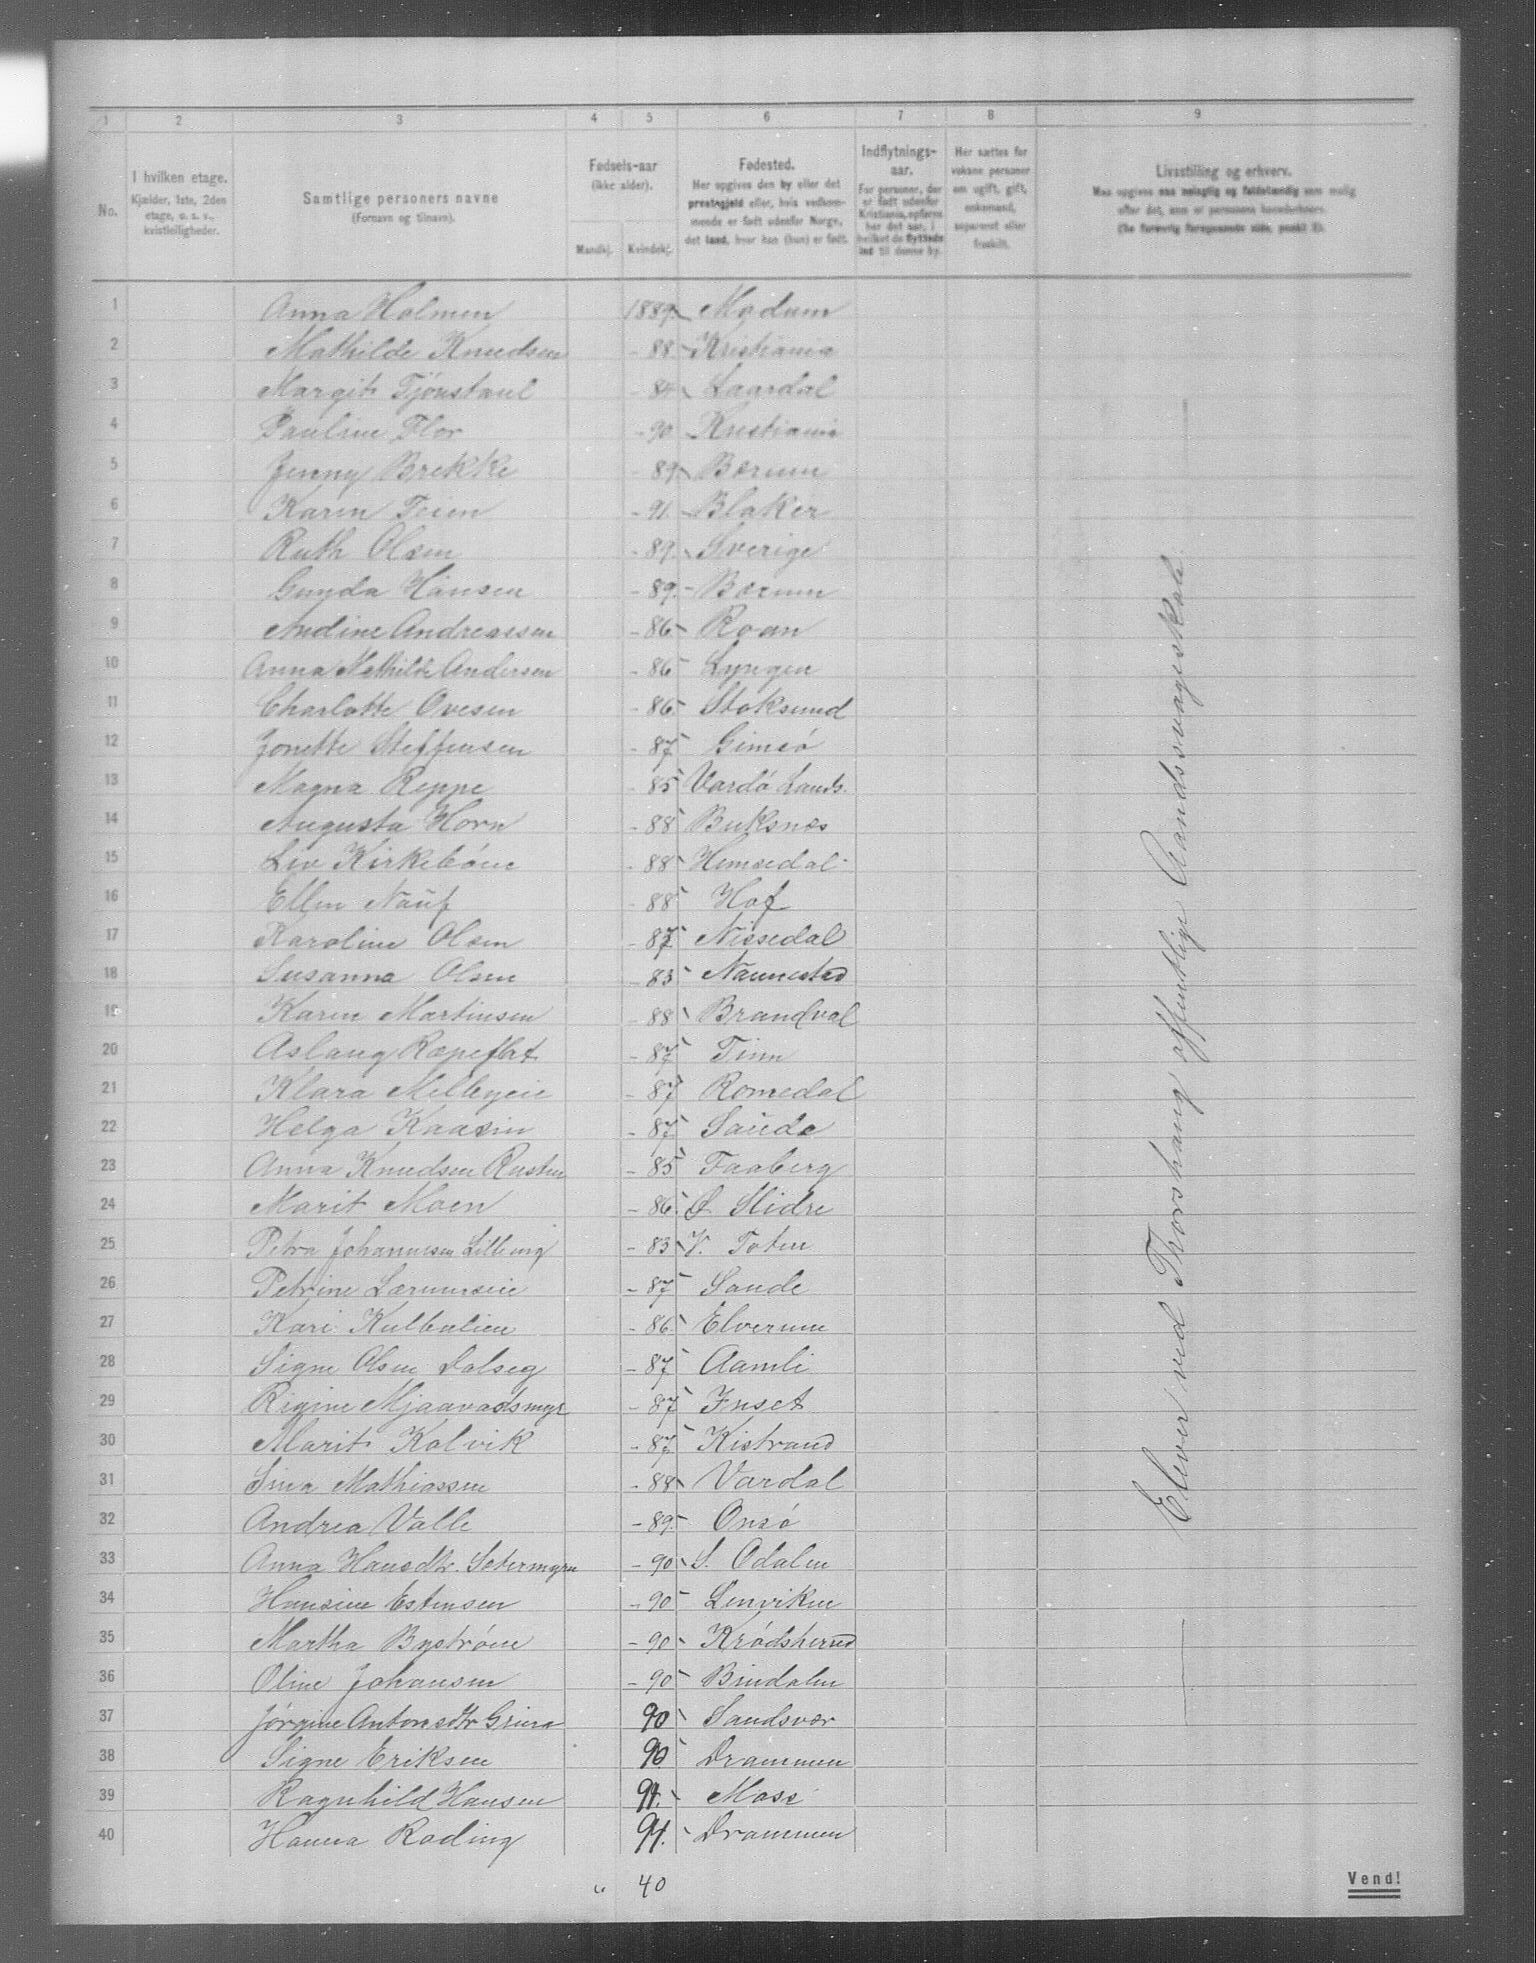 1 2 3 4 5 6 7 8 9
No.
I hvilken etage.
Kjælder, 1ste, 2den
etage, o. s. v.,
kvistleiligheder.
Samtlige personers navne
(Fornavn og tilnavn).
Fødsels-aar
(ikke alder).
Mandkj. Kvindekj.
Fødested.
Her opgives den by eller det
præstegjeld eller, hvis vedkom-
mende er født udenfor Norge,
det land, hvor han (hun) er født.
Indflytnings-
aar.
For personer, der
er født udenfor
Kristiania, opføres
her det aar, i
hvilket de flyttede
ind til denne by.
Her sættes for
voksne personer
om ugift, gift,
enkemand,
separeret eller
fraskilt.
Livsstilling og erhverv.
Maa opgives saa nøiagtig og fuldstændig som mulig
efter det, som er personens hovederhverv.
1 Anna Holmen 1889 Modum
2 Mathilde Knudsen - 88 Kristiania
3 Margit Tjönstaul - 84 Laardal
4 Pauline Flor - 90 Kristiania
5 Jenny Brekke - 89 Bærum
6 Karen Teien - 91. Blaker
7 Ruth Olsen - 89. Sverige
8 Gunda Hansen - 89. Bærum
9 Andine Andreassen - 86 Roan
10 Anna Mathilde Andersen - 86 Lyngen
11 Charlotte Ovesen - 86 Stoksund
12 Jonette Steffensen - 87 Gimsö
13 Magna Reppe - 85 Vardö Lands.
14 Augusta Horn - 88 Buksnæs
15 Liv Kirkeböen - 88 Hemsedal
16 Ellen Nauf - 88 Hof
17 Karoline Olsen - 87 Nissedal
18 Susanna Olsen - 83 Nannestad
19 Karen Martinsen - 88 Brandval
20 Aslaug Ræpeflot - 87 Tinn
21 Klara Mellbyeie - 87 Romedal
22 Helga Kaasin - 87 Saude
23 Anna Knudsen Rusten - 85 Faaberg
24 Marit Moen - 86. Ø. Slidre
25 Petra Johannesen Lilleeng - 83 V. Toten
26 Petrine Lærumseie - 87 Sande
27 Kari Kulbulien - 86 Elverum
28 Signe Olsen Dalseg - 87 Aamli
29 Rigine Mjaavadsmyr - 87 Inset
30 Marit Kolvik - 87 Kistrand
31 Sina Mathiassen - 88 Vardal
32 Andrea Valle - 89. Onsö
33 Anna Hansdtr. Setermyrn - 90 S. Odalen
34 Hansine Estensen - 90 Lenviken
35 Martha Byströen - 90 Krödsherred
36 Oline Johansen - 90 Bindalen
37 Jörgine Antonsdtr Griera 90 Sandsvær
38 Signe Eriksen 90 Drammen
39 Ragnhild Hansen 91. Moss
40 Hanna Roding 91. Drammen
Elever ved Thorshaug offentlige Aandssvageskole
" 40
Vend!